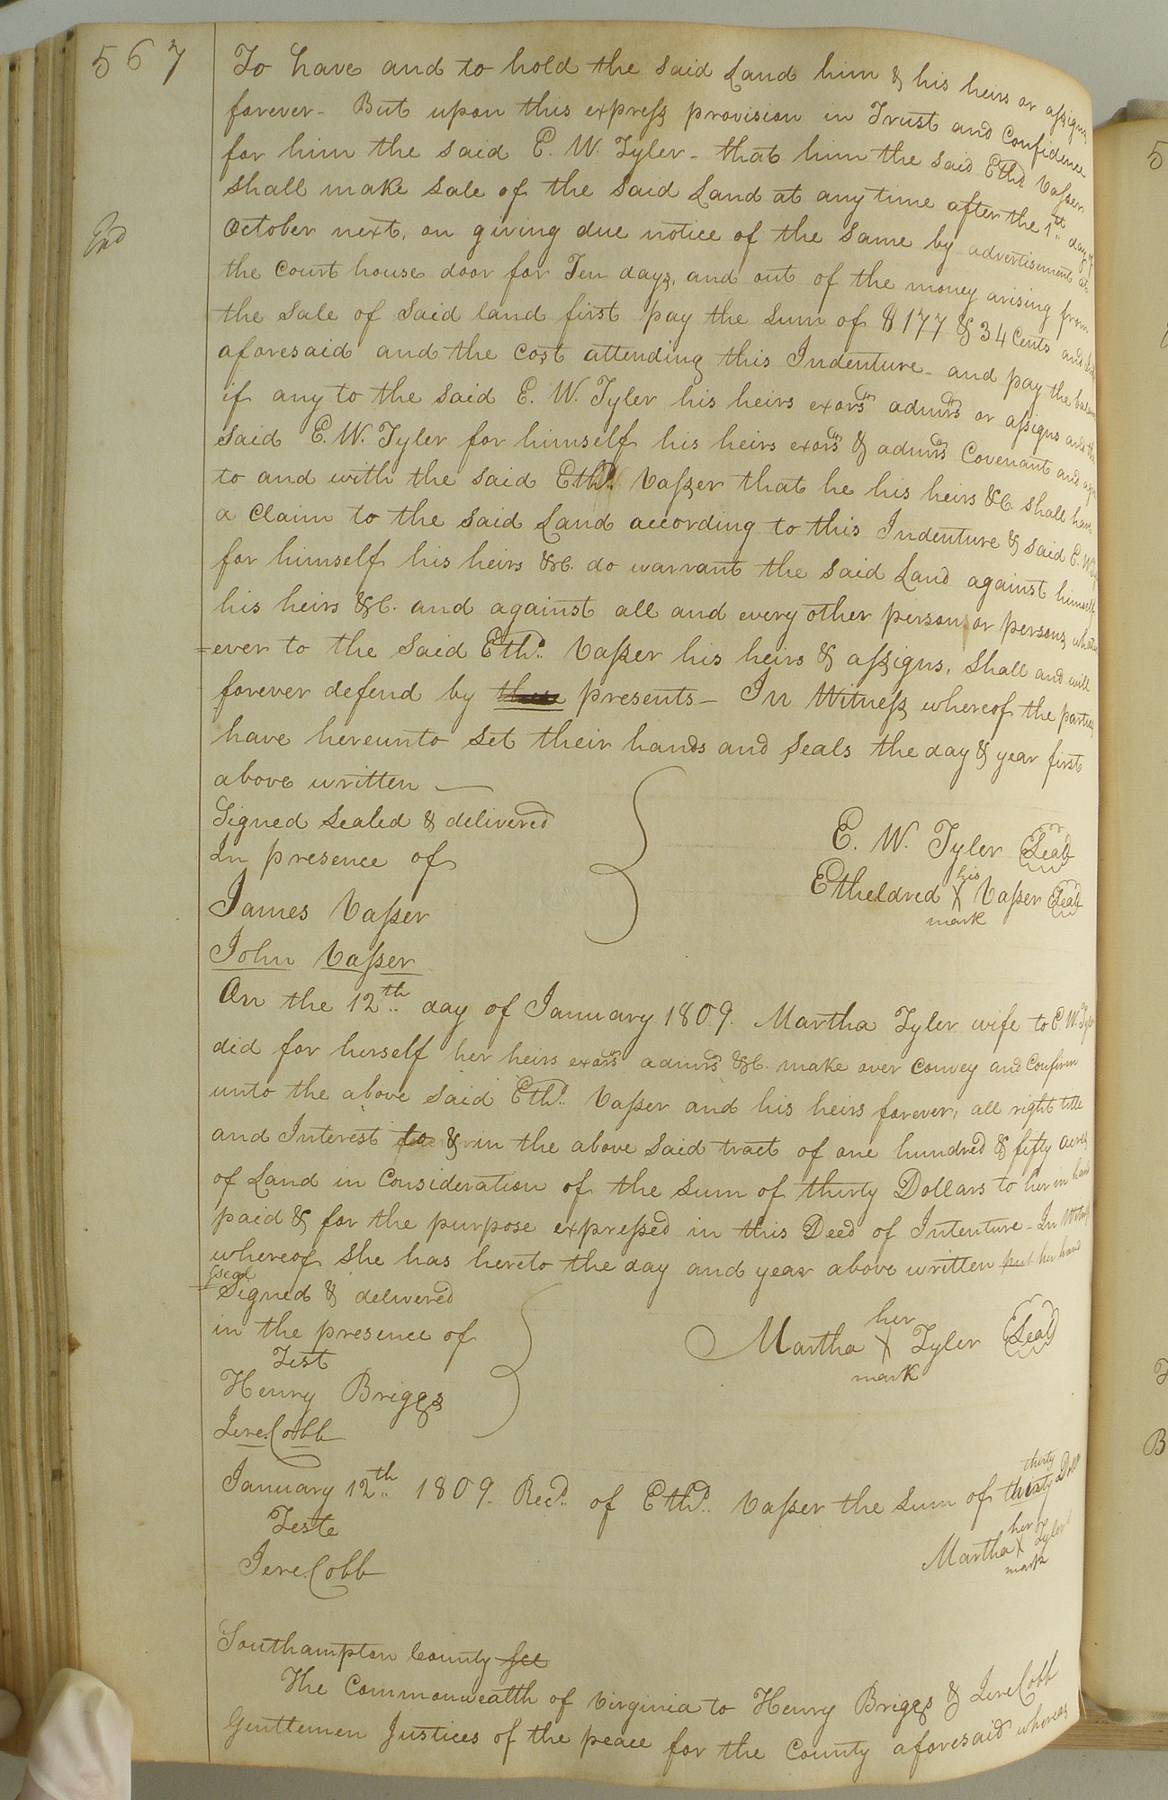 567
To have and to hold the said Land him & his heirs or assigns
forever - But upon this express provision in Trust and Confidence
for him the said E. W. Tyler - that him the said Ethd. Vasser
shall make sale of the said Land at any time after the 1st day of
End
October next, on giving due notice of the same by advertisement at
the Court house door for Ten days, and out of the money arising from
the sale of said land first pay the sum of $177 & 34 Cents and
aforesaid and the cost attending this Indenture - and pay the balance
if any to the said E. W. Tyler his heirs exors admrs or assigns and the
said E. W. Tyler for himself his heirs exors & admrs Covenant and
to and with the said Ethd. Vasser that he his heirs &C. shall have
a Claim to the said Land according to this Indenture & said E. W.
for himself his heirs &C. do warrant the said Land against himself
his heirs &C. and against all and every other person or persons
=ever to the said Ethd. Vasser his heirs & assigns, shall and will
forever defend by these presents - In Witness whereof the parties
have hereunto set their hands and seals the day & year first
above written
Signed Sealed & delivered
In presence of
James Vasser
John Vasser
E. W. Tyler Seal
Etheldred his X mark Vasser Seal
On the 12th day of January 1809. Martha Tyler wife to E. W. Tyler
did for herself her heirs exors admrs &C. make over Convey and Confirm
unto the above said Ethd. Vasser and his heirs forever, all right title
and Interest to & in the above said tract of one hundred & fifty acres
of Land in Consideration of the sum of thirty Dollars to her in hand
paid & for the purpose expressed in this Deed of Intenture - In Witness
whereof she has hereto the day and year above written put her hand
= seal
Signed & delivered
in the presence of
Test
Henry Briggs
Jere. Cobb
Martha her X mark Tyler Seal
January 12th 1809. Recd. of Ethd. Vasser the sum of thirty thirty Dolls
Teste
Jere. Cobb
Martha her X mark Tyler
Southampton County Sct
The Commonwealth of Virginia to Henry Briggs & Jere Cobb
Gentlemen Justices of the peace for the County aforesaid whereas